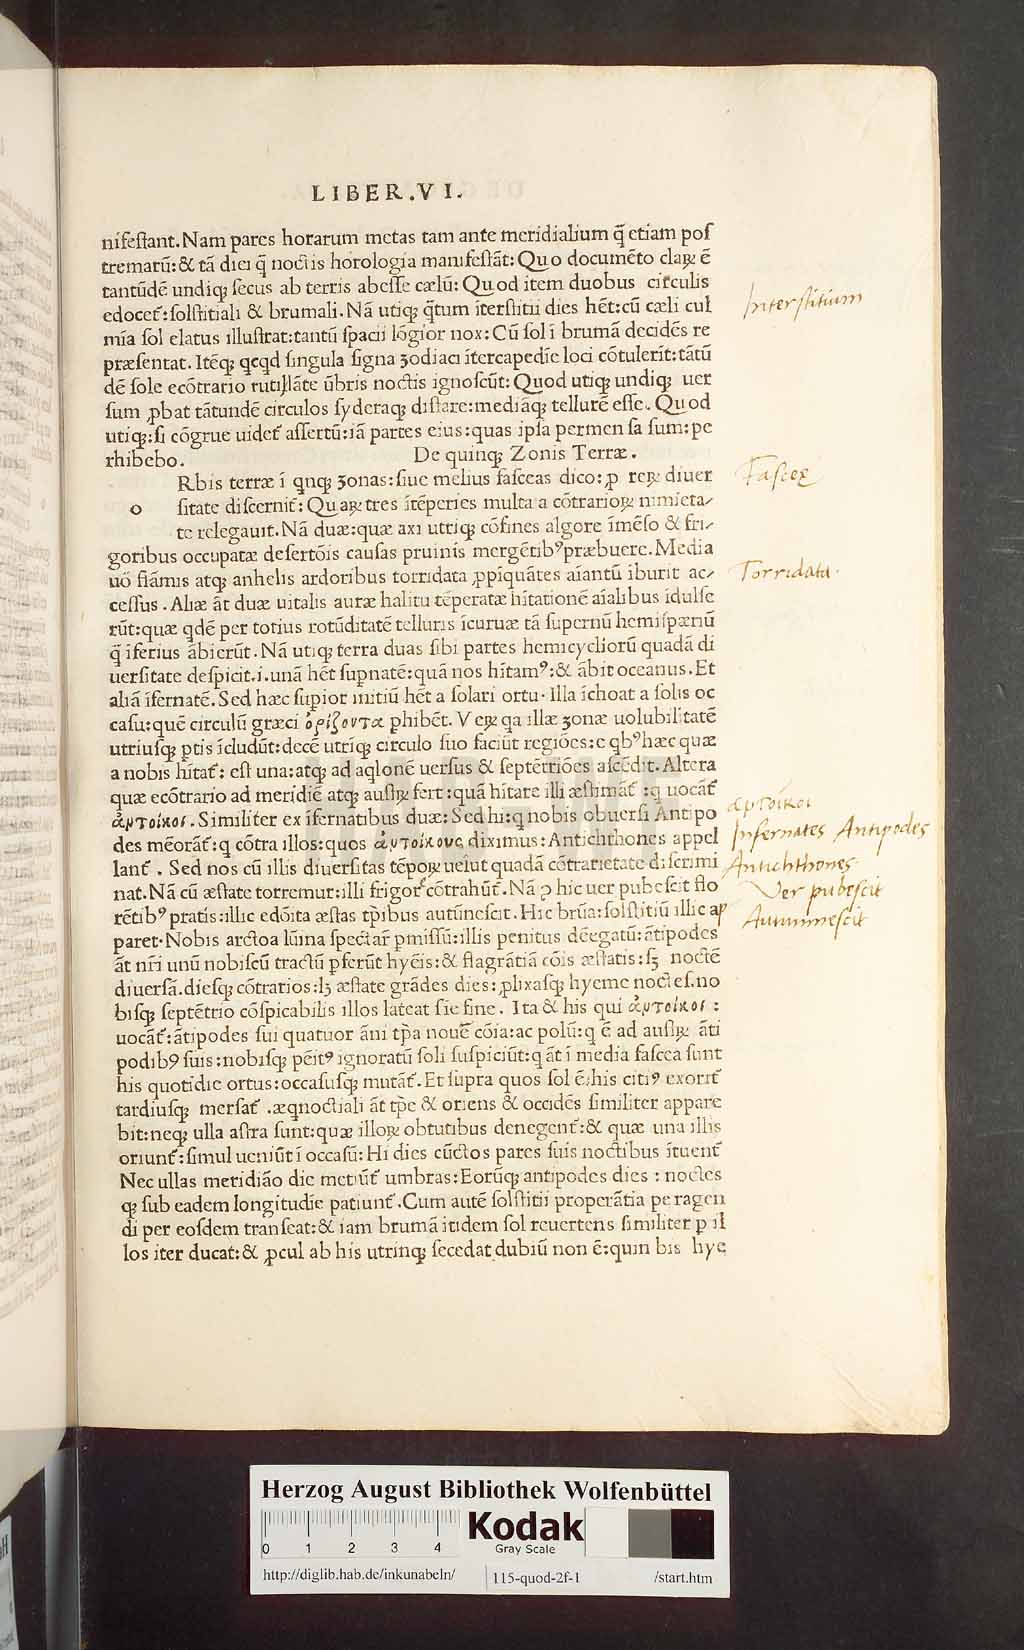 LIBER.VI.
nifeſtant.Nam pares horarum metas tam ante meridialium q̃ etiam poſ
tremarũ:& tã diei q̃ noctis horologia manifeſtãt:Quo documẽto claꝝ ẽ
tantũdẽ undiqꝫ ſecus ab terris abeſſe cælũ:Quod item duobus circulis
edocet̃:ſolſtitiali & brumali.Nã utiqꝫ q̃tum ĩterſtitii dies hẽt:cũ cæli cul
mĩa ſol elatus illuſtrat:tantũ ſpacii lõgior nox:Cũ ſol ĩ brumã decidẽs re
præſentat.Itẽqꝫ qcqd ſingula ſigna ʒodiaci ĩtercapedĩe loci cõtulerĩt:tãtũ
dẽ ſole ecõtrario rutilãte ũbris noctis ignoſcũt:Quod utiqꝫ undiqꝫ uer
ſum ꝓbat tãtundẽ circulos ſyderaqꝫ diſtare:mediãqꝫ tellurẽ eſſe.Quod
utiqꝫ:ſi cõgrue uidet̃ aſſertũ:iã partes eius:quas ipſa permenſa ſum:pe
rhibebo.
De quinqꝫ Zonis Terræ.
o
Rbis terræ ĩ qnqꝫ ʒonas:ſiue melius faſceas dico:ꝓ reꝝ diuer
ſitate diſcernit̃:Quaꝝ tres ĩtẽperies multa a cõtrarioꝝ nimieta-
te relegauit.Nã duæ:quæ axi utriqꝫ cõfines algore ĩmẽſo & fri-
goribus occupatæ deſertõis cauſas pruinis mergẽtibꝰ præbuere.Media
uõ flãmis atqꝫ anhelis ardoribus torridata ꝓpĩquãtes aĩantũ ĩburit ac-
ceſſus.Aliæ ãt duæ uitalis auræ halitu tẽperatæ hĩtationẽ aĩalibus ĩdulſe
rũt:quæ qdẽ per totius rotũditatẽ telluris ĩcuruæ tã ſupernũ hemiſpæriũ
q̃ ĩferius ãbierũt.Nã utiqꝫ terra duas ſibi partes hemicycliorũ quadã di
uerſitate deſpicit.i.unã hẽt ſupnatẽ:quã nos hĩtamꝰ:& ãbit oceanus.Et
aliã ĩfernatẽ.Sed hæc ſupior initiũ hẽt a ſolari ortu.illa ĩchoat a ſolis oc
caſu:quẽ circulũ græci ὁρίζοντα phibẽt.Veꝝ qa illæ ʒonæ uolubilitatẽ
utriuſqꝫ ptis ĩcludũt:decẽ utrĩqꝫ circulo ſuo faciũt regiões:e qbꝰ hæc quæ
a nobis hĩtat̃: eſt una:atqꝫ ad aqlonẽ uerſus & ſeptẽtriões aſcẽdit.Altera
quæ ecõtrario ad meridiẽ atqꝫ auſtꝝ fert:quã hĩtare illi æſtimãt̃:q uocãt̃
ἀρτοίκοι.Similiter ex ĩfernatibus duæ:Sed hi:q nobis obuerſi Antipo
des mẽorãt̃:q cõtra illos:quos ἀρτοίκους diximus:Antichthones appel
lant̃. Sed nos cũ illis diuerſitas tẽpoꝝ uelut quadã cõtrarietate diſcrimi
nat.Nã cũ æſtate torremur:illi frigore cõtrahũt̃.Nã ꝙ hic uer pubeſcit flo
rẽtibꝰ pratis:illic edõita æſtas tp̃ibus autũneſcit.Hic brũa:ſolſtitiũ illic ap
paret.Nobis arctoa lũina ſpectar̃ pmiſſũ:illis penitus dẽegatũ:ãtipodes
ãt nr̃i unũ nobiſcũ tractũ pferũt hyẽis:& flagrãtiã cõis æſtatis:ſꝫ noctẽ
diuerſã.dieſqꝫ cõtrarios:lꝫ æſtate grãdes dies:ꝓlixaſqꝫ hyeme noctes.no
biſqꝫ ſeptẽtrio cõſpicabilis illos lateat ſie fine. Ita & his qui ἀρτοίκοι:
uocãt̃:ãtipodes ſui quatuor ãni tp̃a nouẽ cõia:ac polũ:q ẽ ad auſtꝝ ãti
podibꝰ ſuis:nobiſqꝫ pẽitꝰ ignoratũ ſoli ſuſpiciũt:q ãt ĩ media faſcea ſunt
his quotidie ortus:occaſuſqꝫ mutãt̃.Et ſupra quos ſol ẽ:his citiꝰ exorit̃
tardiuſqꝫ merſat̃.æqnoctiali ãt tp̃e & oriens & occidẽs ſimiliter appare
bit:neqꝫ ulla aſtra ſunt:quæ illoꝝ obtutibus denegent̃:& quæ una illis
oriunt̃:ſimul ueniũt ĩ occaſũ:Hi dies cũctos pares ſuis noctibus ĩtuent̃
Nec ullas meridião die metiũt̃ umbras:Eorũqꝫ antipodes dies:noctes
qꝫ ſub eadem longitudĩe patiunt̃.Cum autẽ ſolſtitii properãtia peragen
di per eoſdem tranſeat:& iam brumã itidem ſol reuertens ſimiliter p il
los iter ducat:& ꝓcul ab his utrinqꝫ ſecedat dubiũ non ẽ:quin bis hye
Interstitium
Fasceę
Torridata.
ἀρτοίκοι
Infernates Antipodes
Antichthones
Ver pubescit
Autumnescit
HAB-WF
Herzog August Bibliothek Wolfenbüttel
0 1 2 3 4
Kodak
Gray Scale
http://diglib.hab.de/inkunabeln/ 115-quod-2f-1 /start.htm